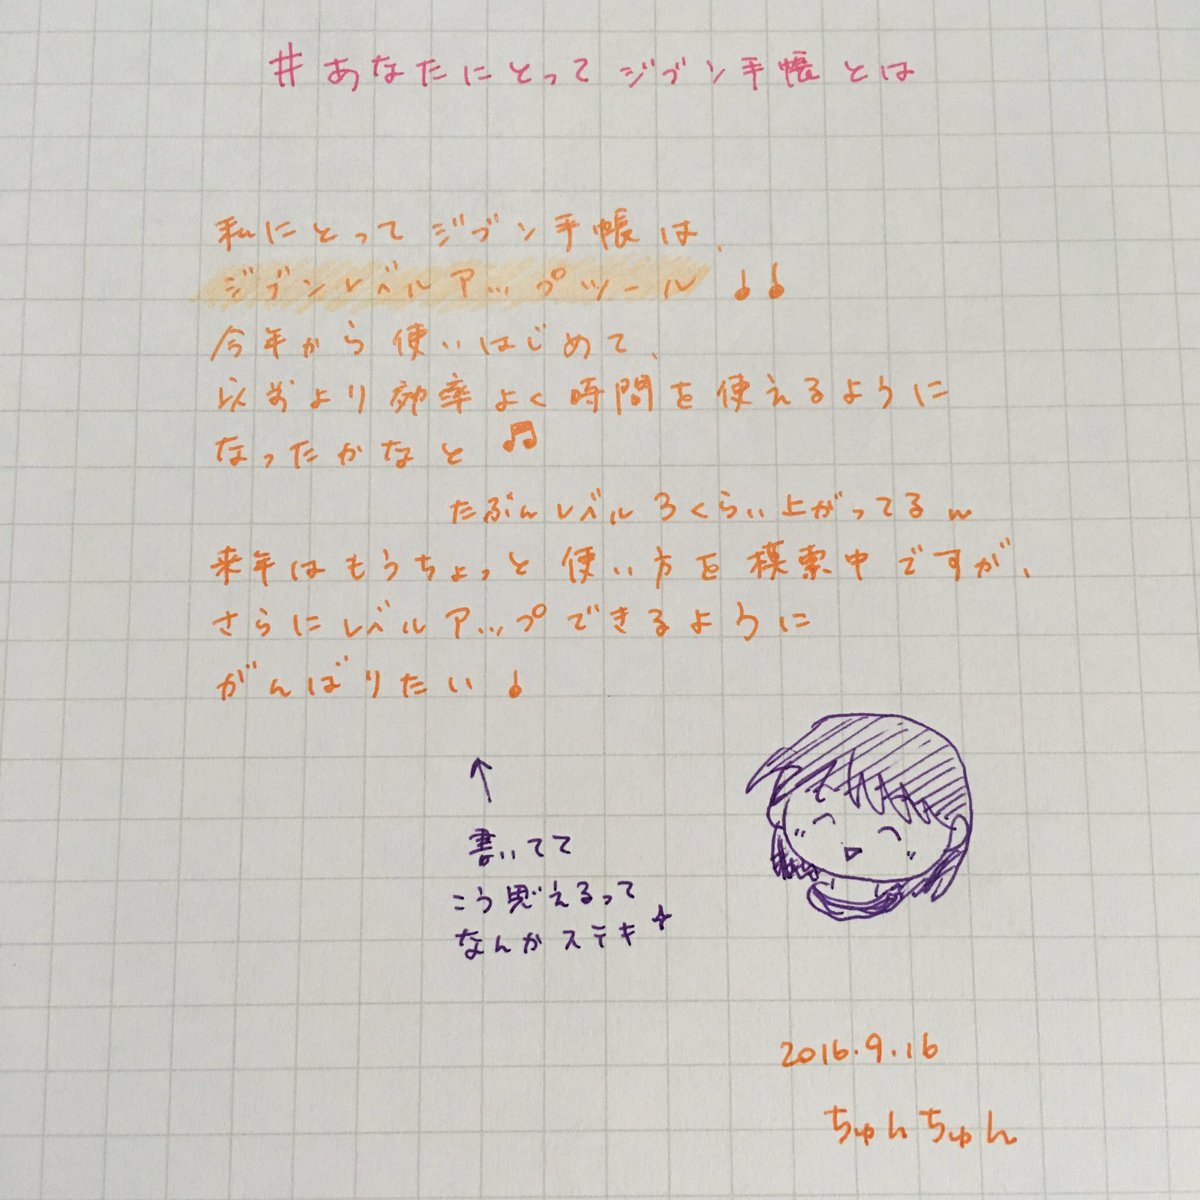 #あなたにとってジブン手帳とは
私にとってジブン手帳は、
ジブンレベルアップツール♩♩
今年から使いはじめて、
以前より効率よく時間を使えるように
なったかなと♫
たぶんレベル3くらい上がってるw
来年はもうちょっと使い方を模索中ですが、
さらにレベルアップできるように
がんばりたい♩
↑
書いてて
こう思えるって
なんかステキ☆
2016.9.16
ちゅんちゅん